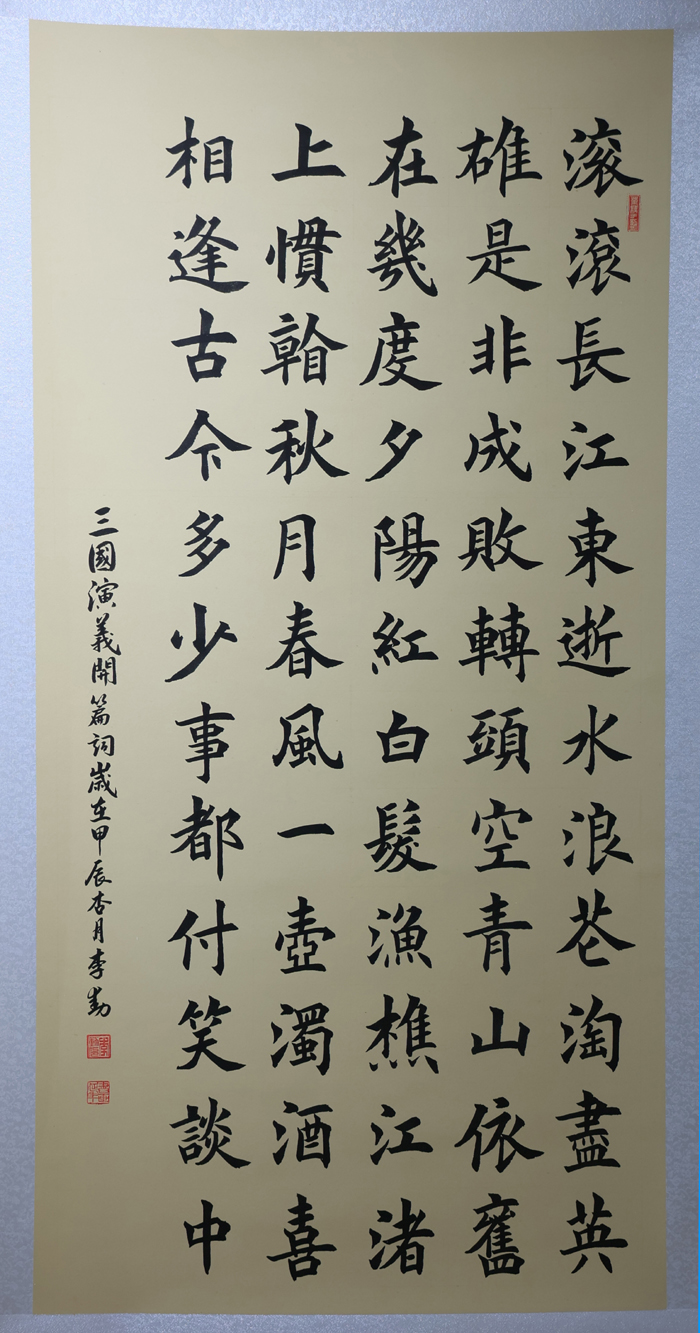 滚滾長江東逝水浪花淘盡英
雄是非成敗轉頭空青山依舊
在幾度夕陽紅白髮漁樵江渚
上慣看秋月春風一壺濁酒喜
相逢古今多少事都付笑談中
三國演義開篇詞歲在甲辰杏月李